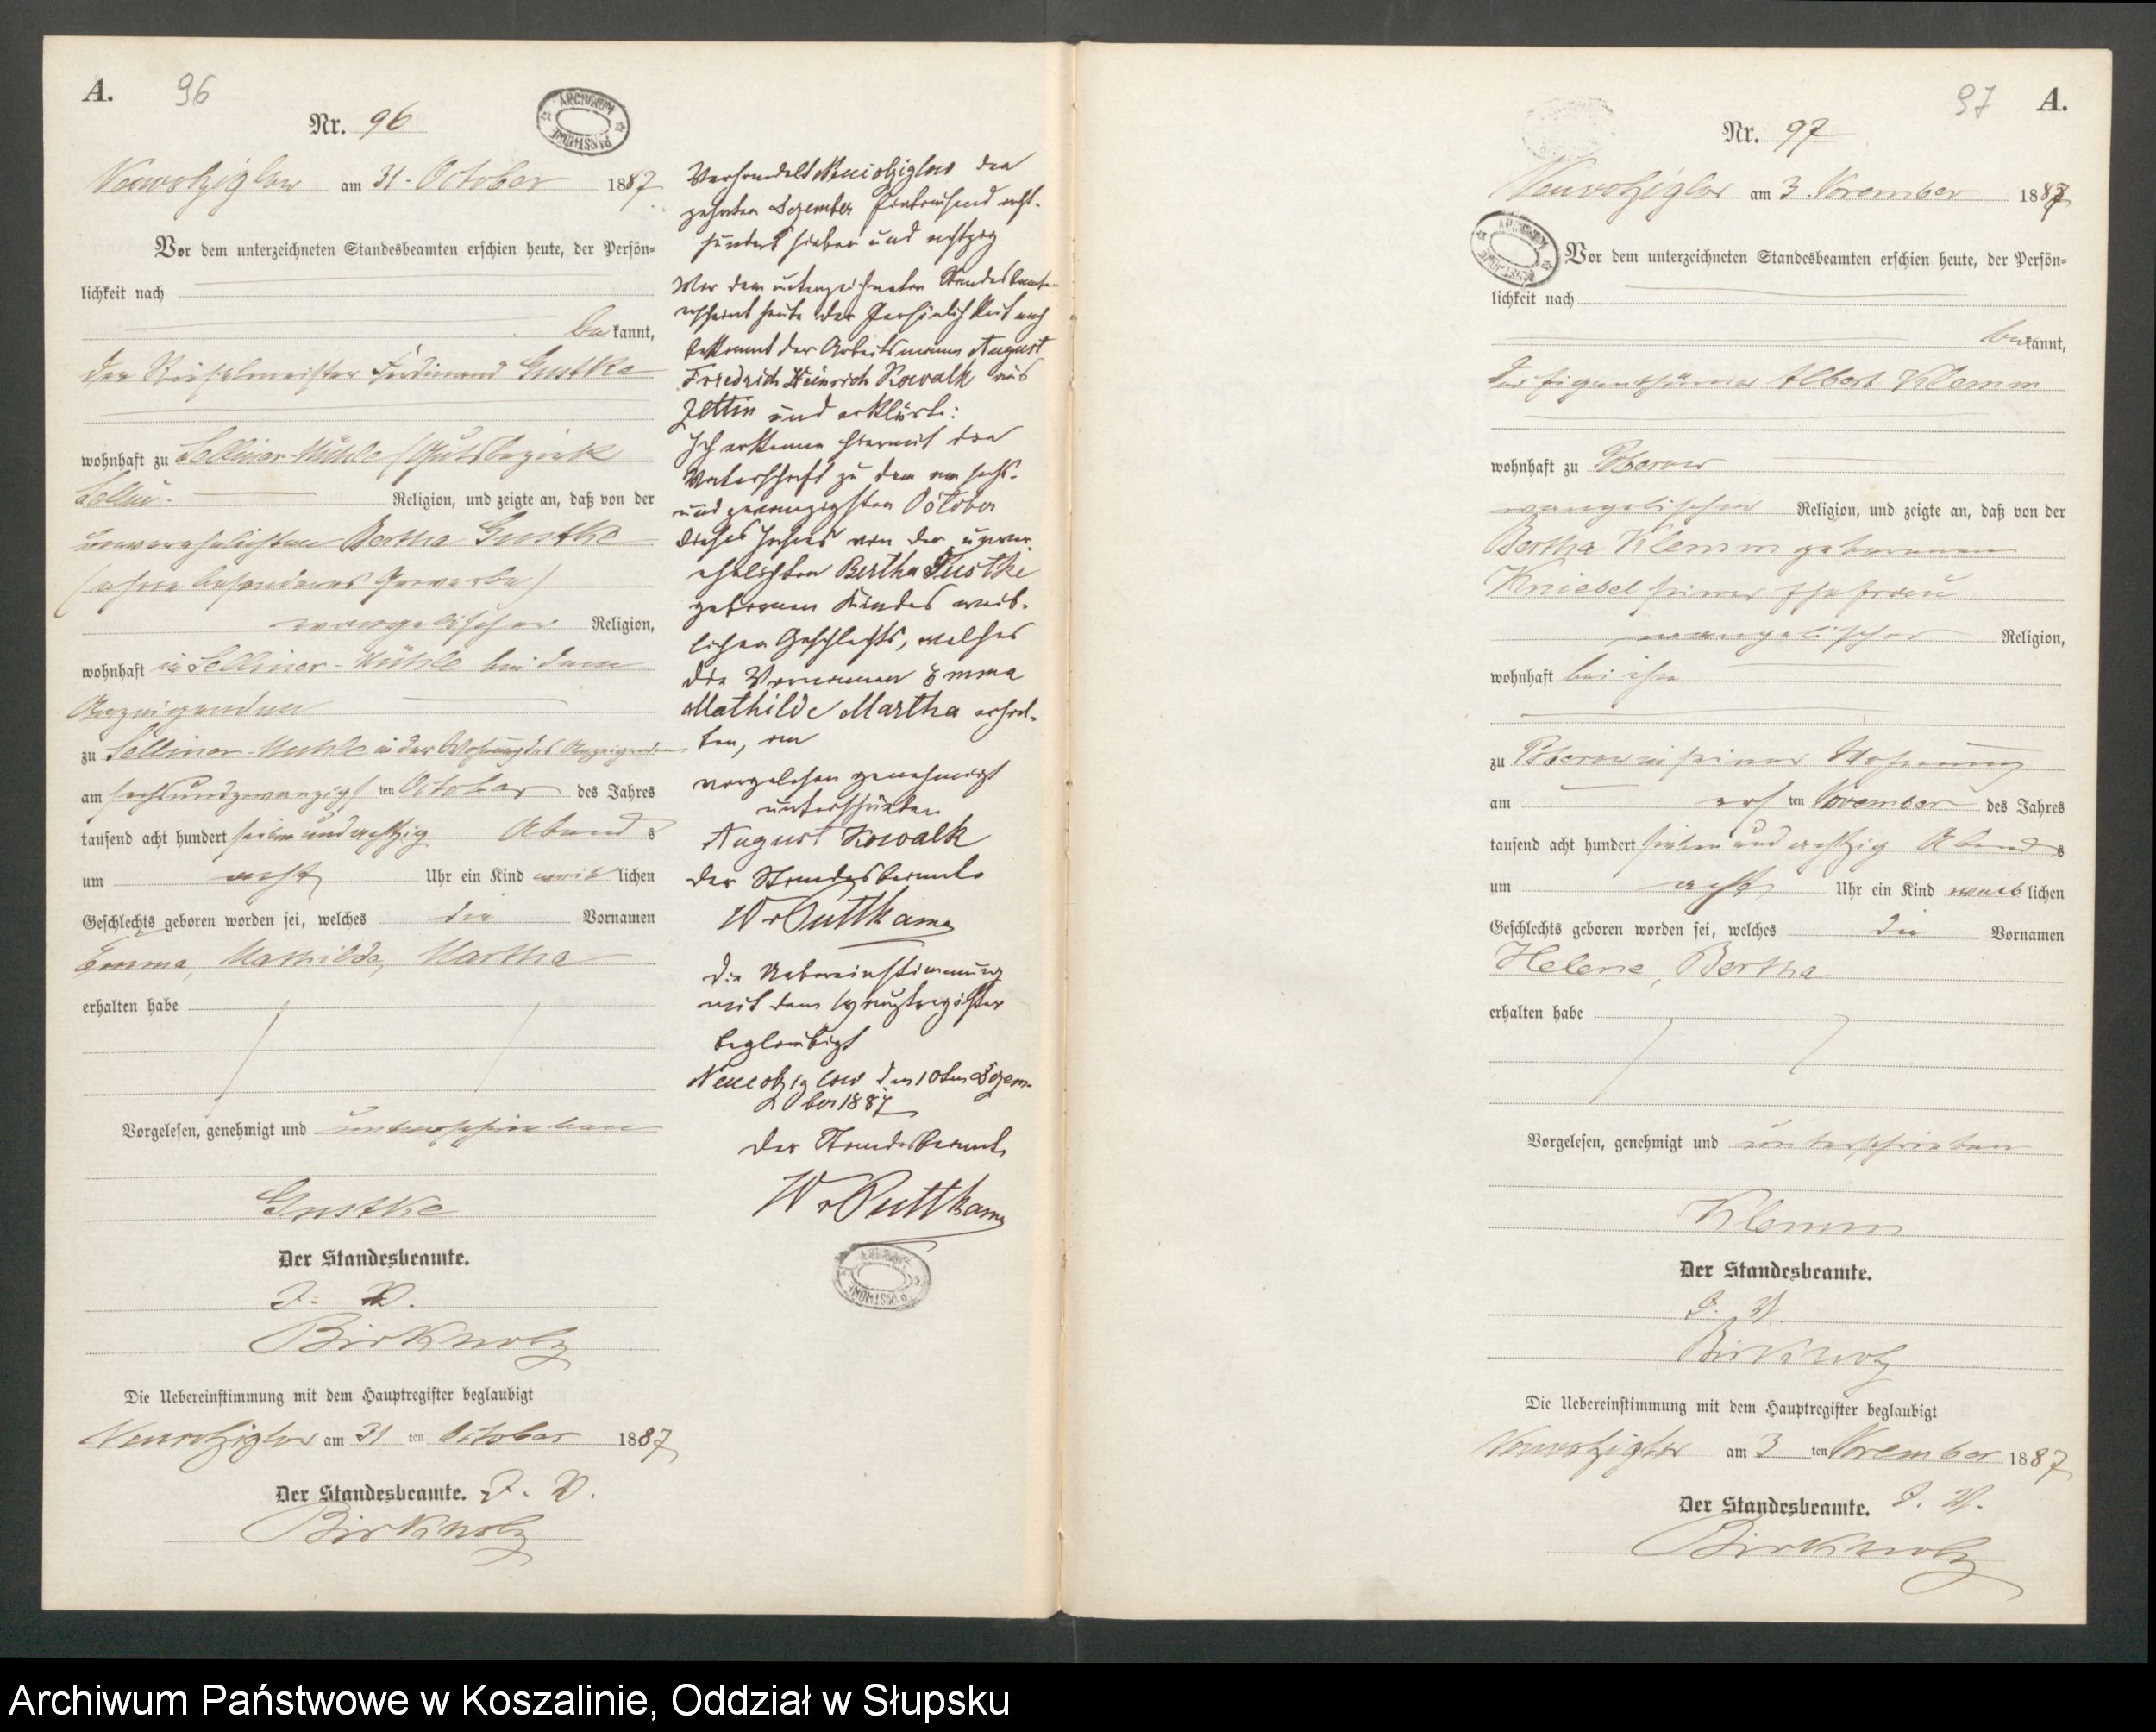 A. 96
Nr. 96
ARCHIWUM PAŃSTWOWE
Neuwolziglow am 31. October 1887
Vor dem unterzeichneten Standesbeamten erschien heute, der Persön=
lichkeit nach
be kannt,
der Rieselmeister Ferdinand Gustke
wohnhaft zu Selliner-Mühle (Gutsbezirk
Sellin. Religion, und zeigte an, daß von der
unverehelichten Bertha Gustke
(ohne besonderes Gewerbe)
evangelischer Religion,
wohnhaft in Selliner-Mühle bei dem
Anzeigenden
zu Selliner-Mühle in der Wohnung des Anzeigenden
am sechsundzwanzigsten October des Jahres
tausend acht hundert sieben und achtzig Abends
um acht Uhr ein Kind weiblichen
Geschlechts geboren worden sei, welches die Vornamen
Emma, Mathilde, Martha
erhalten habe
Vorgelesen, genehmigt und unterschrieben
Gustke
Der Standesbeamte.
J. V.
Birkholz
Die Uebereinstimmung mit dem Hauptregister beglaubigt
Neuwolziglow am 31 ten October 1887
Der Standesbeamte. J. V.
Birkholz
Verhandelt Neuwolziglow den
zehnten Dezember eintausend acht-
hundert sieben und achtzig
Vor dem unterzeichneten Standesbeamten
erscheint heute der Persönlichkeit nach
bekannt der Arbeitsmann August
Friedrich Heinrich Kowalk aus
Zettin und erklärte:
Ich erkenne hiermit die
Vaterschaft zu dem am sechs-
und zwanzigsten October
dieses Jahres von der unver-
ehelichten Bertha Gustke
geborenen Kindes weib-
lichen Geschlechts, welches
die Vornamen Emma
Mathilde Martha erhal-
ten, an
vorgelesen genehmigt
unterschrieben
August Kowalk
Der Standesbeamte
W v Puttkamer
Die Uebereinstimmung
mit dem Hauptregister
beglaubigt
Neuwolziglow den 10ten Dezem-
ber 1887
Der Standesbeamte
W v Puttkamer
97 A.
Nr. 97
Neuwolziglow am 3. November 1887
Vor dem unterzeichneten Standesbeamten erschien heute, der Persön=
lichkeit nach
bekannt,
der Eigenthümer Albert Klemm
wohnhaft zu Poberow
evangelischer Religion, und zeigte an, daß von der
Bertha Klemm geborenen
Kniebel seiner Ehefrau
evangelischer Religion,
wohnhaft bei ihm
zu Poberow in seiner Wohnung
am ersten November des Jahres
tausend acht hundert sieben und achtzig Abends
um acht Uhr ein Kind weiblichen
Geschlechts geboren worden sei, welches die Vornamen
Helene, Bertha
erhalten habe
Vorgelesen, genehmigt und unterschrieben
Klemm
Der Standesbeamte.
J. V.
Birkholz
Die Uebereinstimmung mit dem Hauptregister beglaubigt
Neuwolziglow am 3 ten November 1887
Der Standesbeamte. J. V.
Birkholz
Archiwum Państwowe w Koszalinie, Oddział w Słupsku